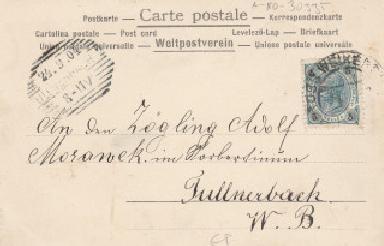 A-NO-30335
Postkarte — Carte postale — Korrespondenzkarte
Cartolina postale — Post card — Levelező-Lap — Briefkaart
Union postale universelle — Weltpostverein — Unione postale universale
An den Zögling Adolf
Mozanek im Norbertinum
Tullnerbach
W. B.